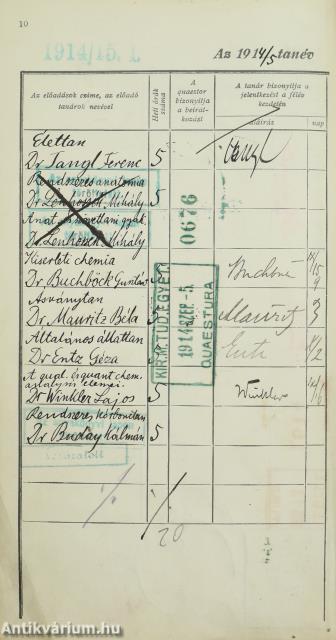 10
1914/15. I.
Az 1914/5 tanév
Az előadások címe, az előadó tanárok nevével
Heti órák száma
A quaestor bizonyítja a beiratkozást
A tanár bizonyítja a jelentkezést a félév kezdetén
aláírás
nap
Élettan
Dr Tangl Ferenc 5
Tangl
Rendszeres anatomia
Dr Lenhossék Mihály 5
Anat. és
Dr Lenhossék Mihály
0676
Kisérleti chemia
Dr Buchböck Gusztáv 5
KIR. M. TUD. EGYET.
1914 SZEP -5.
QUAESTURA
Ásványtan
Dr Mauritz Béla 5
Mauritz
Általános állattan
Dr Entz Géza 5
Entz
A qual. és quant chem.
analysis elemei.
Dr Winkler Lajos 5
Winkler
Rendszeres kórbonctan
Dr Buday Kálmán 5
20
Antikvárium.hu